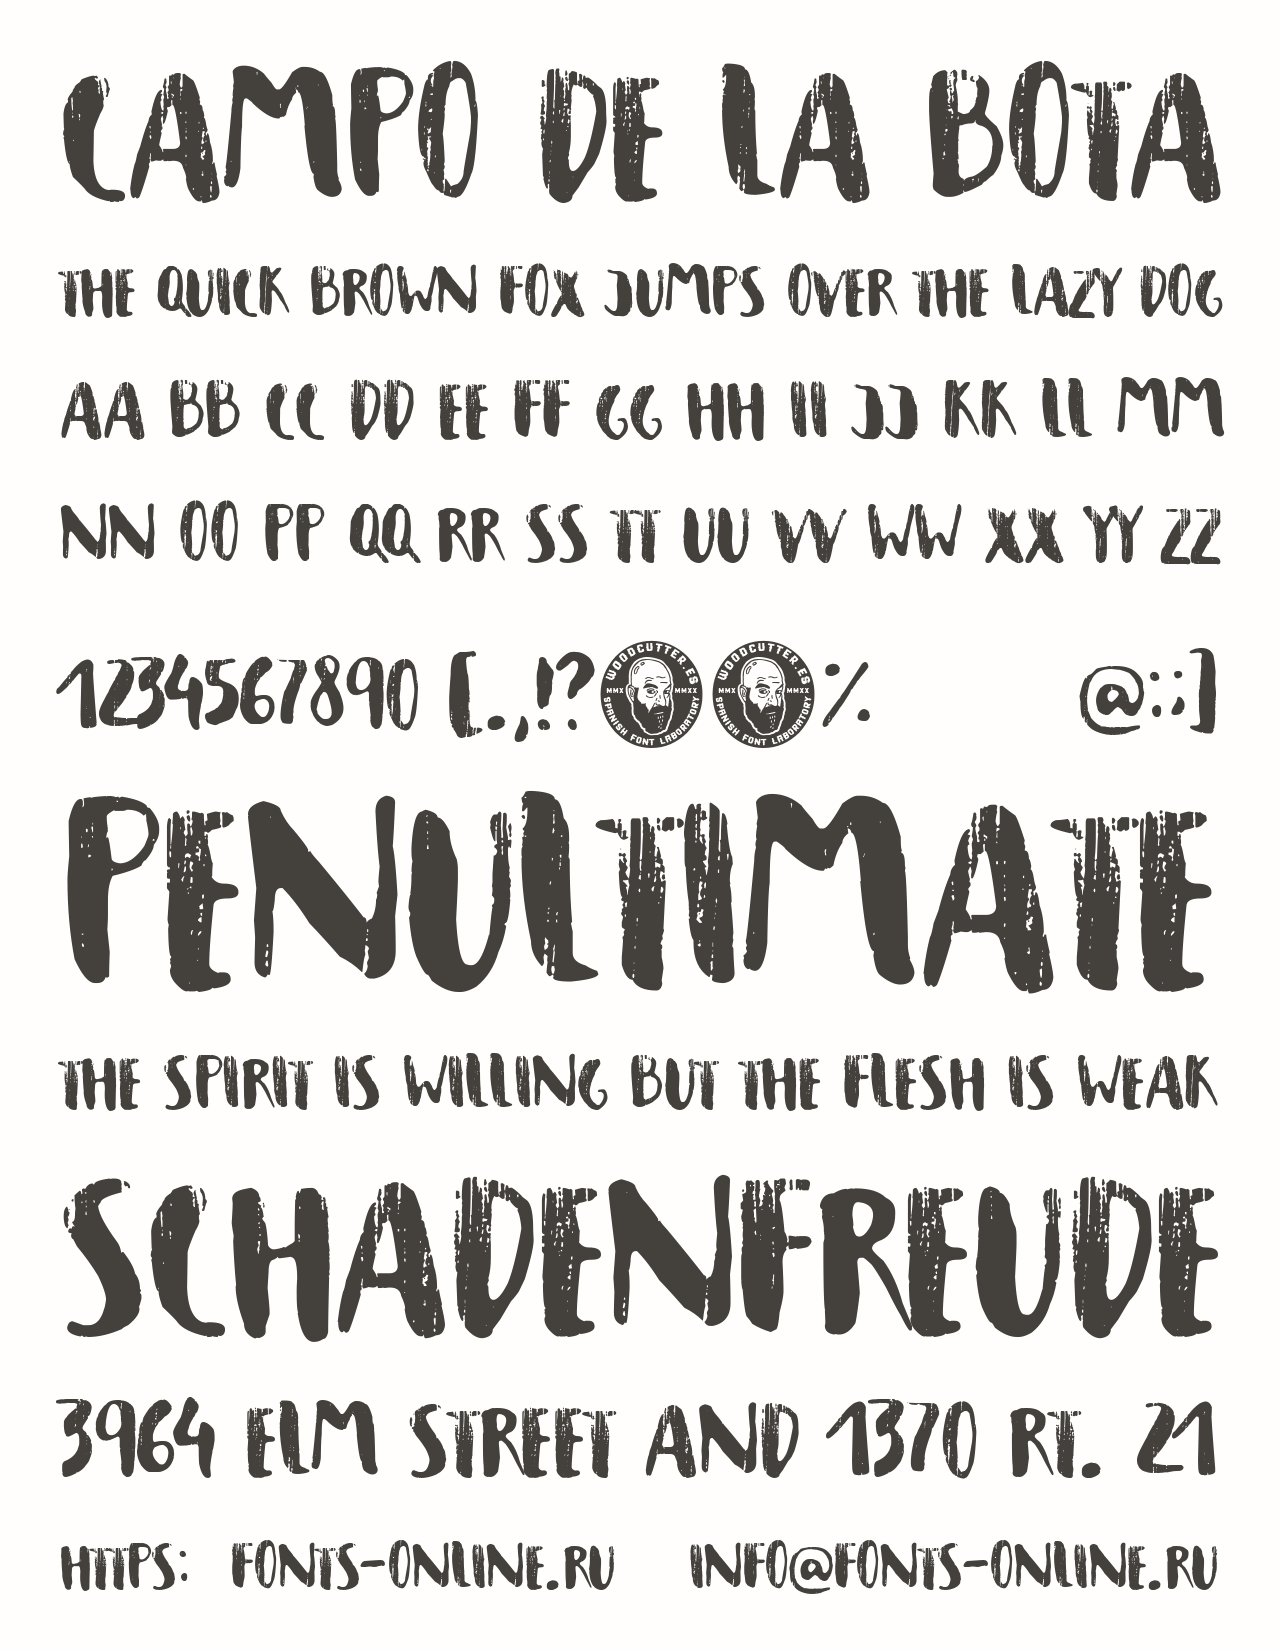 CAMPO DE LA BOTA
THE QUICK BROWN FOX JUMPS OVER THE LAZY DOG
AA BB CC DD EE FF GG HH II JJ KK LL MM
NN OO PP QQ RR SS TT UU VV WW XX YY ZZ
1234567890 [.,!? WOODCUTTER.ES MMX MMXX SPANISH FONT LABORATORY WOODCUTTER.ES MMX MMXX SPANISH FONT LABORATORY % @:;]
PENULTIMATE
THE SPIRIT IS WILLING BUT THE FLESH IS WEAK
SCHADENFREUDE
3964 ELM STREET AND 1370 RT. 21
HTTPS: FONTS-ONLINE.RU INFO@FONTS-ONLINE.RU